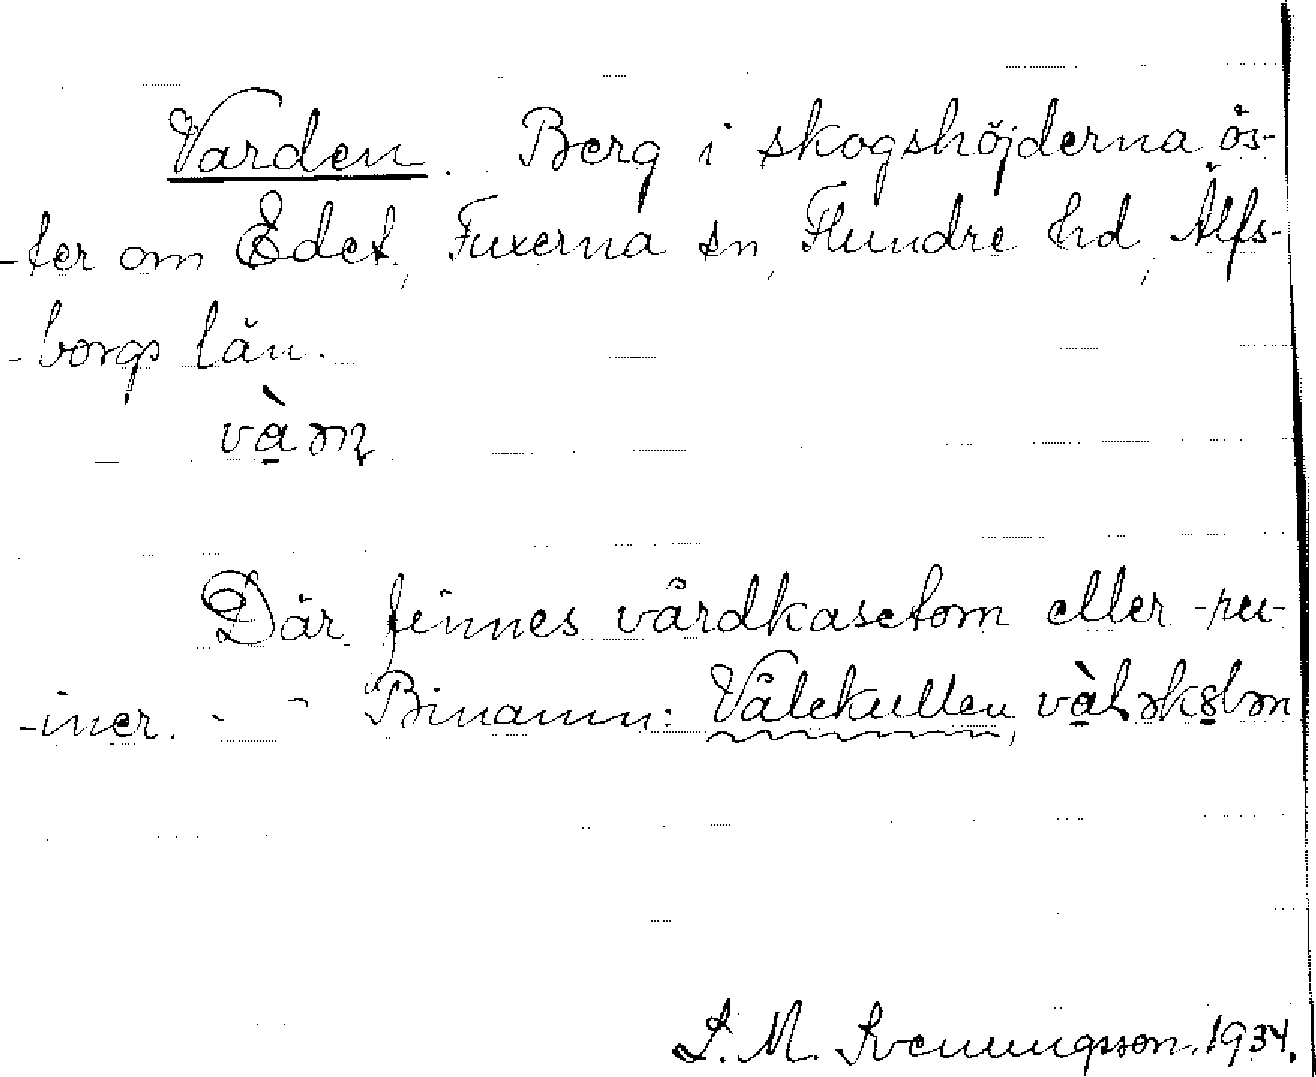 Varden. Berg i skogshöjderna ös-
-ter om Edet, Fuxerna sn, Flundre hd, Älfs-
-borgs län.
Där finnes vårdkasetom eller -ru-
-iner. - - Binamn: Vålekullen,
S. M. Svenungsson. 1934.